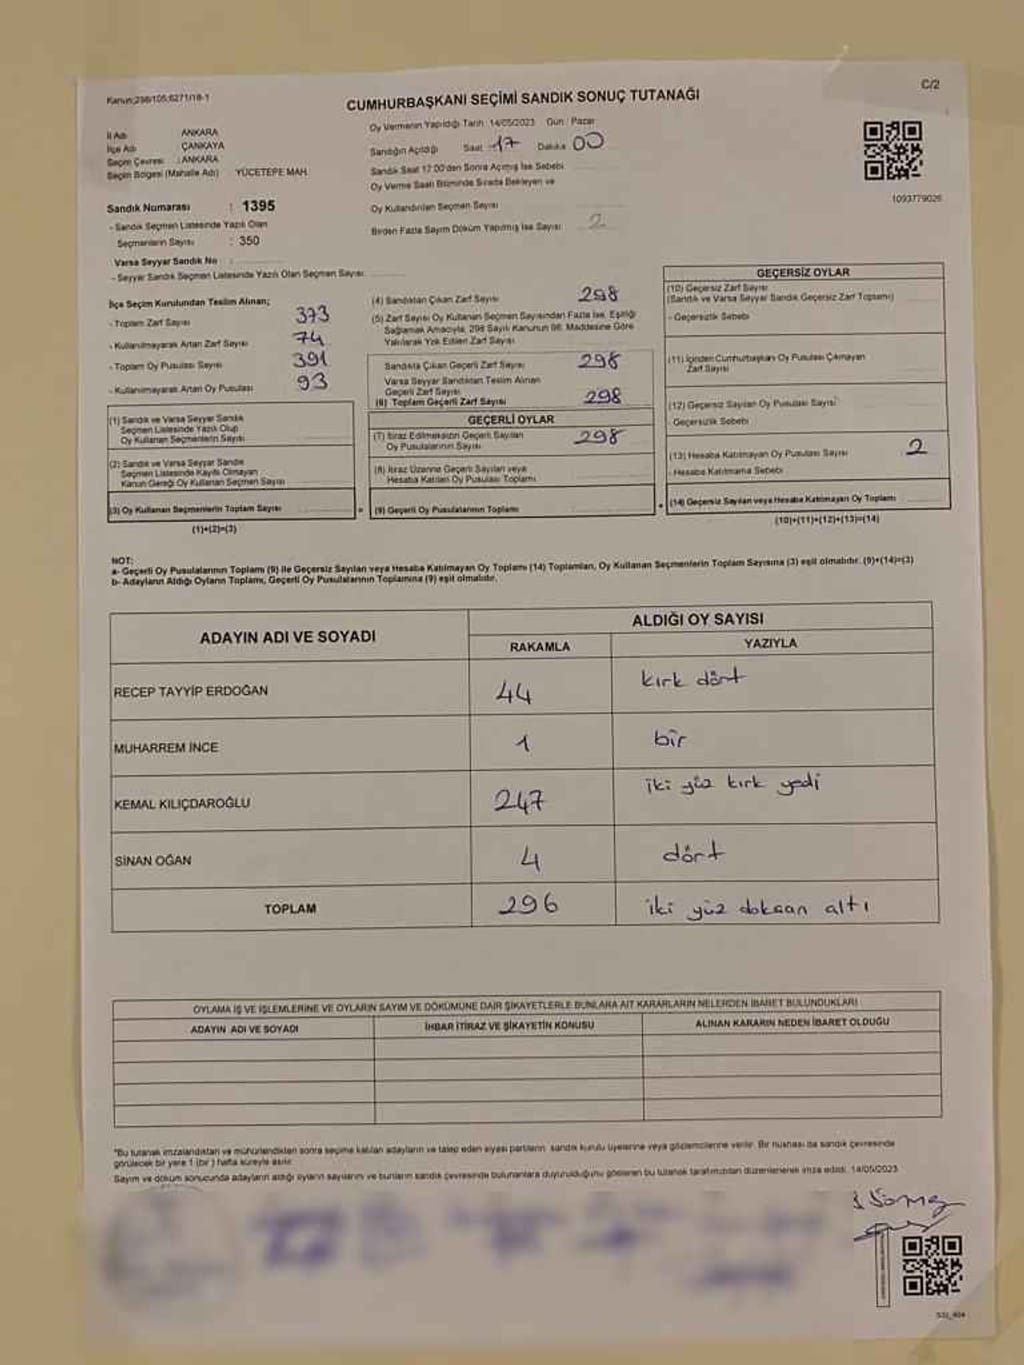 Kanun;298/105;6271/18-1
C/2
CUMHURBAŞKANI SEÇİMİ SANDIK SONUÇ TUTANAĞI
İl Adı ANKARA
İlçe Adı ÇANKAYA
Seçim Çevresi : ANKARA
Seçim Bölgesi (Mahalle Adı) YÜCETEPE MAH.
Sandık Numarası : 1395
- Sandık Seçmen Listesinde Yazılı Olan
Seçmenlerin Sayısı : 350
Varsa Seyyar Sandık No :
- Seyyar Sandık Seçmen Listesinde Yazılı Olan Seçmen Sayısı
Oy Vermenin Yapıldığı Tarih : 14/05/2023 Gün : Pazar
Sandığın Açıldığı Saat 17 Dakika 00
Sandık Saat 17:00'den Sonra Açılmış İse Sebebi
Oy Verme Saati Bitiminde Sırada Bekleyen ve
Oy Kullandırılan Seçmen Sayısı
Birden Fazla Sayım Döküm Yapılmış İse Sayısı 2
1093779026
İlçe Seçim Kurulundan Teslim Alınan;
- Toplam Zarf Sayısı 373
- Kullanılmayarak Artan Zarf Sayısı 74
- Toplam Oy Pusulası Sayısı 391
- Kullanılmayarak Artan Oy Pusulası 93
(1) Sandık ve Varsa Seyyar Sandık
Seçmen Listesinde Yazılı Olup
Oy Kullanan Seçmenlerin Sayısı
(2) Sandık ve Varsa Seyyar Sandık
Seçmen Listesinde Kayıtlı Olmayan
Kanun Gereği Oy Kullanan Seçmen Sayısı
(3) Oy Kullanan Seçmenlerin Toplam Sayısı
(1)+(2)=(3)
(4) Sandıktan Çıkan Zarf Sayısı 298
(5) Zarf Sayısı Oy Kullanan Seçmen Sayısından Fazla İse, Eşitliği
Sağlamak Amacıyla, 298 Sayılı Kanunun 98. Maddesine Göre
Yakılarak Yok Edilen Zarf Sayısı
Sandıkta Çıkan Geçerli Zarf Sayısı 298
Varsa Seyyar Sandıktan Teslim Alınan
Geçerli Zarf Sayısı
(6) Toplam Geçerli Zarf Sayısı 298
GEÇERLİ OYLAR
(7) İtiraz Edilmeksizin Geçerli Sayılan
Oy Pusulalarının Sayısı 298
(8) İtiraz Üzerine Geçerli Sayılan veya
Hesaba Katılan Oy Pusulası Toplamı
(9) Geçerli Oy Pusulalarının Toplamı
GEÇERSİZ OYLAR
(10) Geçersiz Zarf Sayısı
(Sandık ve Varsa Seyyar Sandık Geçersiz Zarf Toplamı)
- Geçersizlik Sebebi
(11) İçinden Cumhurbaşkanı Oy Pusulası Çıkmayan
Zarf Sayısı
(12) Geçersiz Sayılan Oy Pusulası Sayısı
- Geçersizlik Sebebi
(13) Hesaba Katılmayan Oy Pusulası Sayısı 2
- Hesaba Katılmama Sebebi
(14) Geçersiz Sayılan veya Hesaba Katılmayan Oy Toplamı
(10)+(11)+(12)+(13)=(14)
NOT:
a- Geçerli Oy Pusulalarının Toplamı (9) ile Geçersiz Sayılan veya Hesaba Katılmayan Oy Toplamı (14) Toplamları, Oy Kullanan Seçmenlerin Toplam Sayısına (3) eşit olmalıdır. (9)+(14)=(3)
b- Adayların Aldığı Oyların Toplamı, Geçerli Oy Pusulalarının Toplamına (9) eşit olmalıdır.
ADAYIN ADI VE SOYADI
ALDIĞI OY SAYISI
RAKAMLA YAZIYLA
RECEP TAYYİP ERDOĞAN 44 kırk dört
MUHARREM İNCE 1 bir
KEMAL KILIÇDAROĞLU 247 iki yüz kırk yedi
SİNAN OĞAN 4 dört
TOPLAM 296 iki yüz doksan altı
OYLAMA İŞ VE İŞLEMLERİNE VE OYLARIN SAYIM VE DÖKÜMÜNE DAİR ŞİKAYETLERLE BUNLARA AİT KARARLARIN NELERDEN İBARET BULUNDUKLARI
ADAYIN ADI VE SOYADI İHBAR İTİRAZ VE ŞİKAYETİN KONUSU ALINAN KARARIN NEDEN İBARET OLDUĞU
*Bu tutanak imzalandıktan ve mühürlendikten sonra seçime katılan adayların ve talep eden siyasi partilerin sandık kurulu üyelerine veya gözlemcilerine verilir. Bir nüshası da sandık çevresinde
görülecek bir yere 1 (bir) hafta süreyle asılır.
Sayım ve döküm sonucunda adayların aldığı oyların sayılarını ve bunların sandık çevresinde bulunanlara duyurulduğunu gösteren bu tutanak tarafımızdan düzenlenerek imza edildi. 14/05/2023